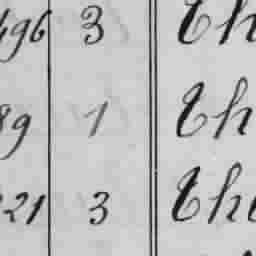 496 3 Th
89 1 Th
221 3 The